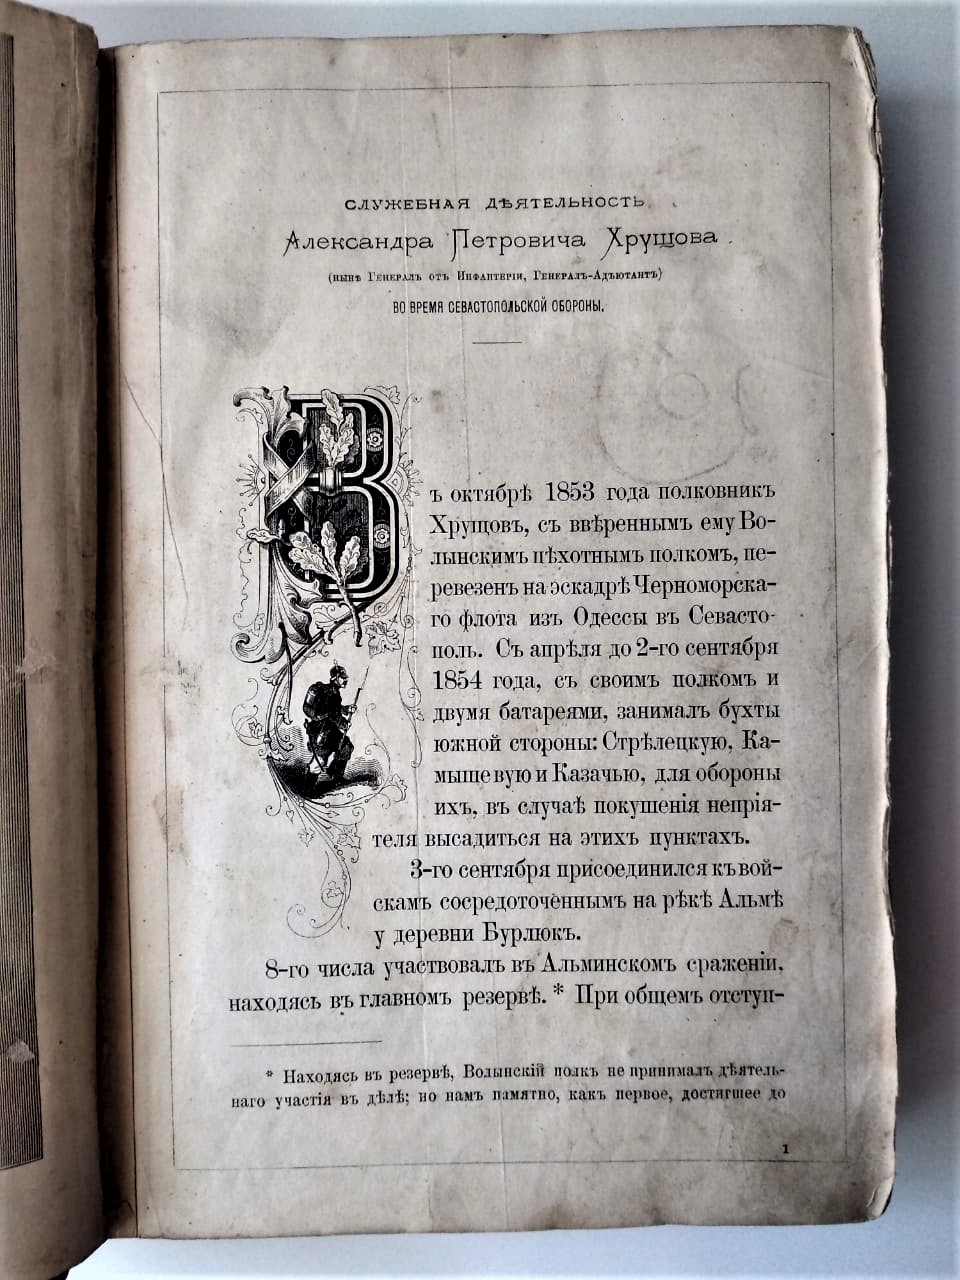 СЛУЖЕБНАЯ ДѢЯТЕЛЬНОСТЬ
Александра Петровича Хрущова
(нынѣ Генералъ отъ Инфантеріи, Генералъ-Адъютантъ)
ВО ВРЕМЯ СЕВАСТОПОЛЬСКОЙ ОБОРОНЫ.
Въ октябрѣ 1853 года полковникъ
Хрущовъ, съ ввѣреннымъ ему Во-
лынскимъ пѣхотнымъ полкомъ, пе-
ревезенъ на эскадрѣ Черноморска-
го флота изъ Одессы въ Севасто-
поль. Съ апрѣля до 2-го сентября
1854 года, съ своимъ полкомъ и
двумя батареями, занималъ бухты
южной стороны: Стрѣлецкую, Ка-
мышевую и Казачью, для обороны
ихъ, въ случаѣ покушенія непрія-
теля высадиться на этихъ пунктахъ.
3-го сентября присоединился къ вой-
скамъ сосредоточеннымъ на рѣкѣ Альмѣ
у деревни Бурлюкъ.
8-го числа участвовалъ въ Альминскомъ сраженіи,
находясь въ главномъ резервѣ. * При общемъ отступ-
* Находясь въ резервѣ, Волынскій полкъ не принималъ дѣятель-
наго участія въ дѣлѣ; но намъ памятно, какъ первое, достигшее до
1